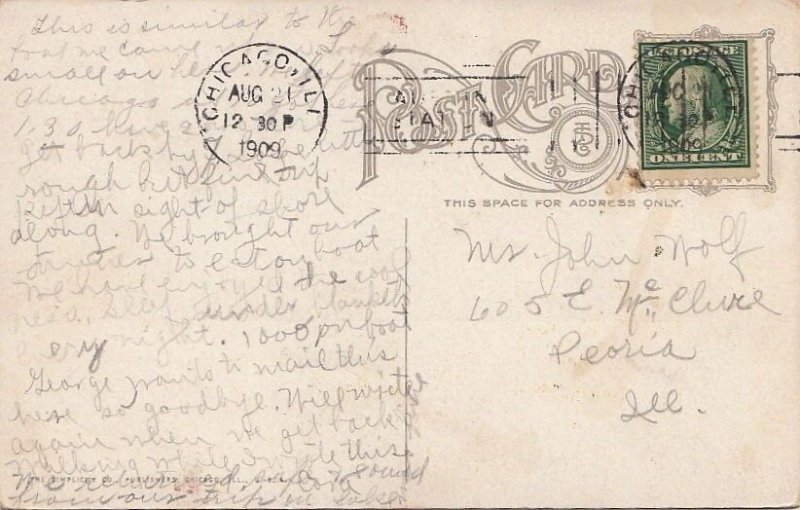 This is similar to the
boat we came on. Looks
small on here. We left
Chicago
1:30
get back by
rough but fine trip
Kept in sight of shore
along. We brought our
to eat on boat
We have enjoyed the cool
ness. Sleep under blankets
every night. 1000 on boat
George wants to mail this
here so goodbye. Will write
again when we get back.
Walking while I write this.
We returned safe & sound
from our trip on lake.
CHICAGO, ILL.
AUG 21
12 30 P
1909
POST CARD
U.S. POSTAGE
ONE CENT
THIS SPACE FOR ADDRESS ONLY.
Mr. John Wolf
605 E. McClure
Peoria
Ill.
THE SIMPLICITY CO., PUBLISHERS, CHICAGO, ILL., U.S.A.